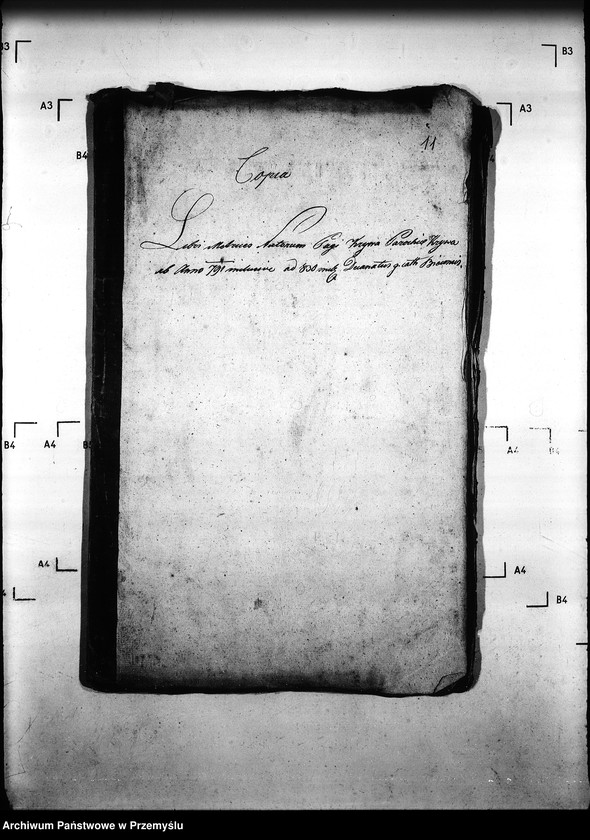 B3
B3
A3
A3
B4
11
Copia
Libri Metrices Natorum Pagi Krywa Parochiae Krywa
ab Anno 791 inclusive ad 830 incl. Decanatus g. cath. Biecensis.
B4
A4
A4
B4
A4
A4
B4
Archiwum Państwowe w Przemyślu